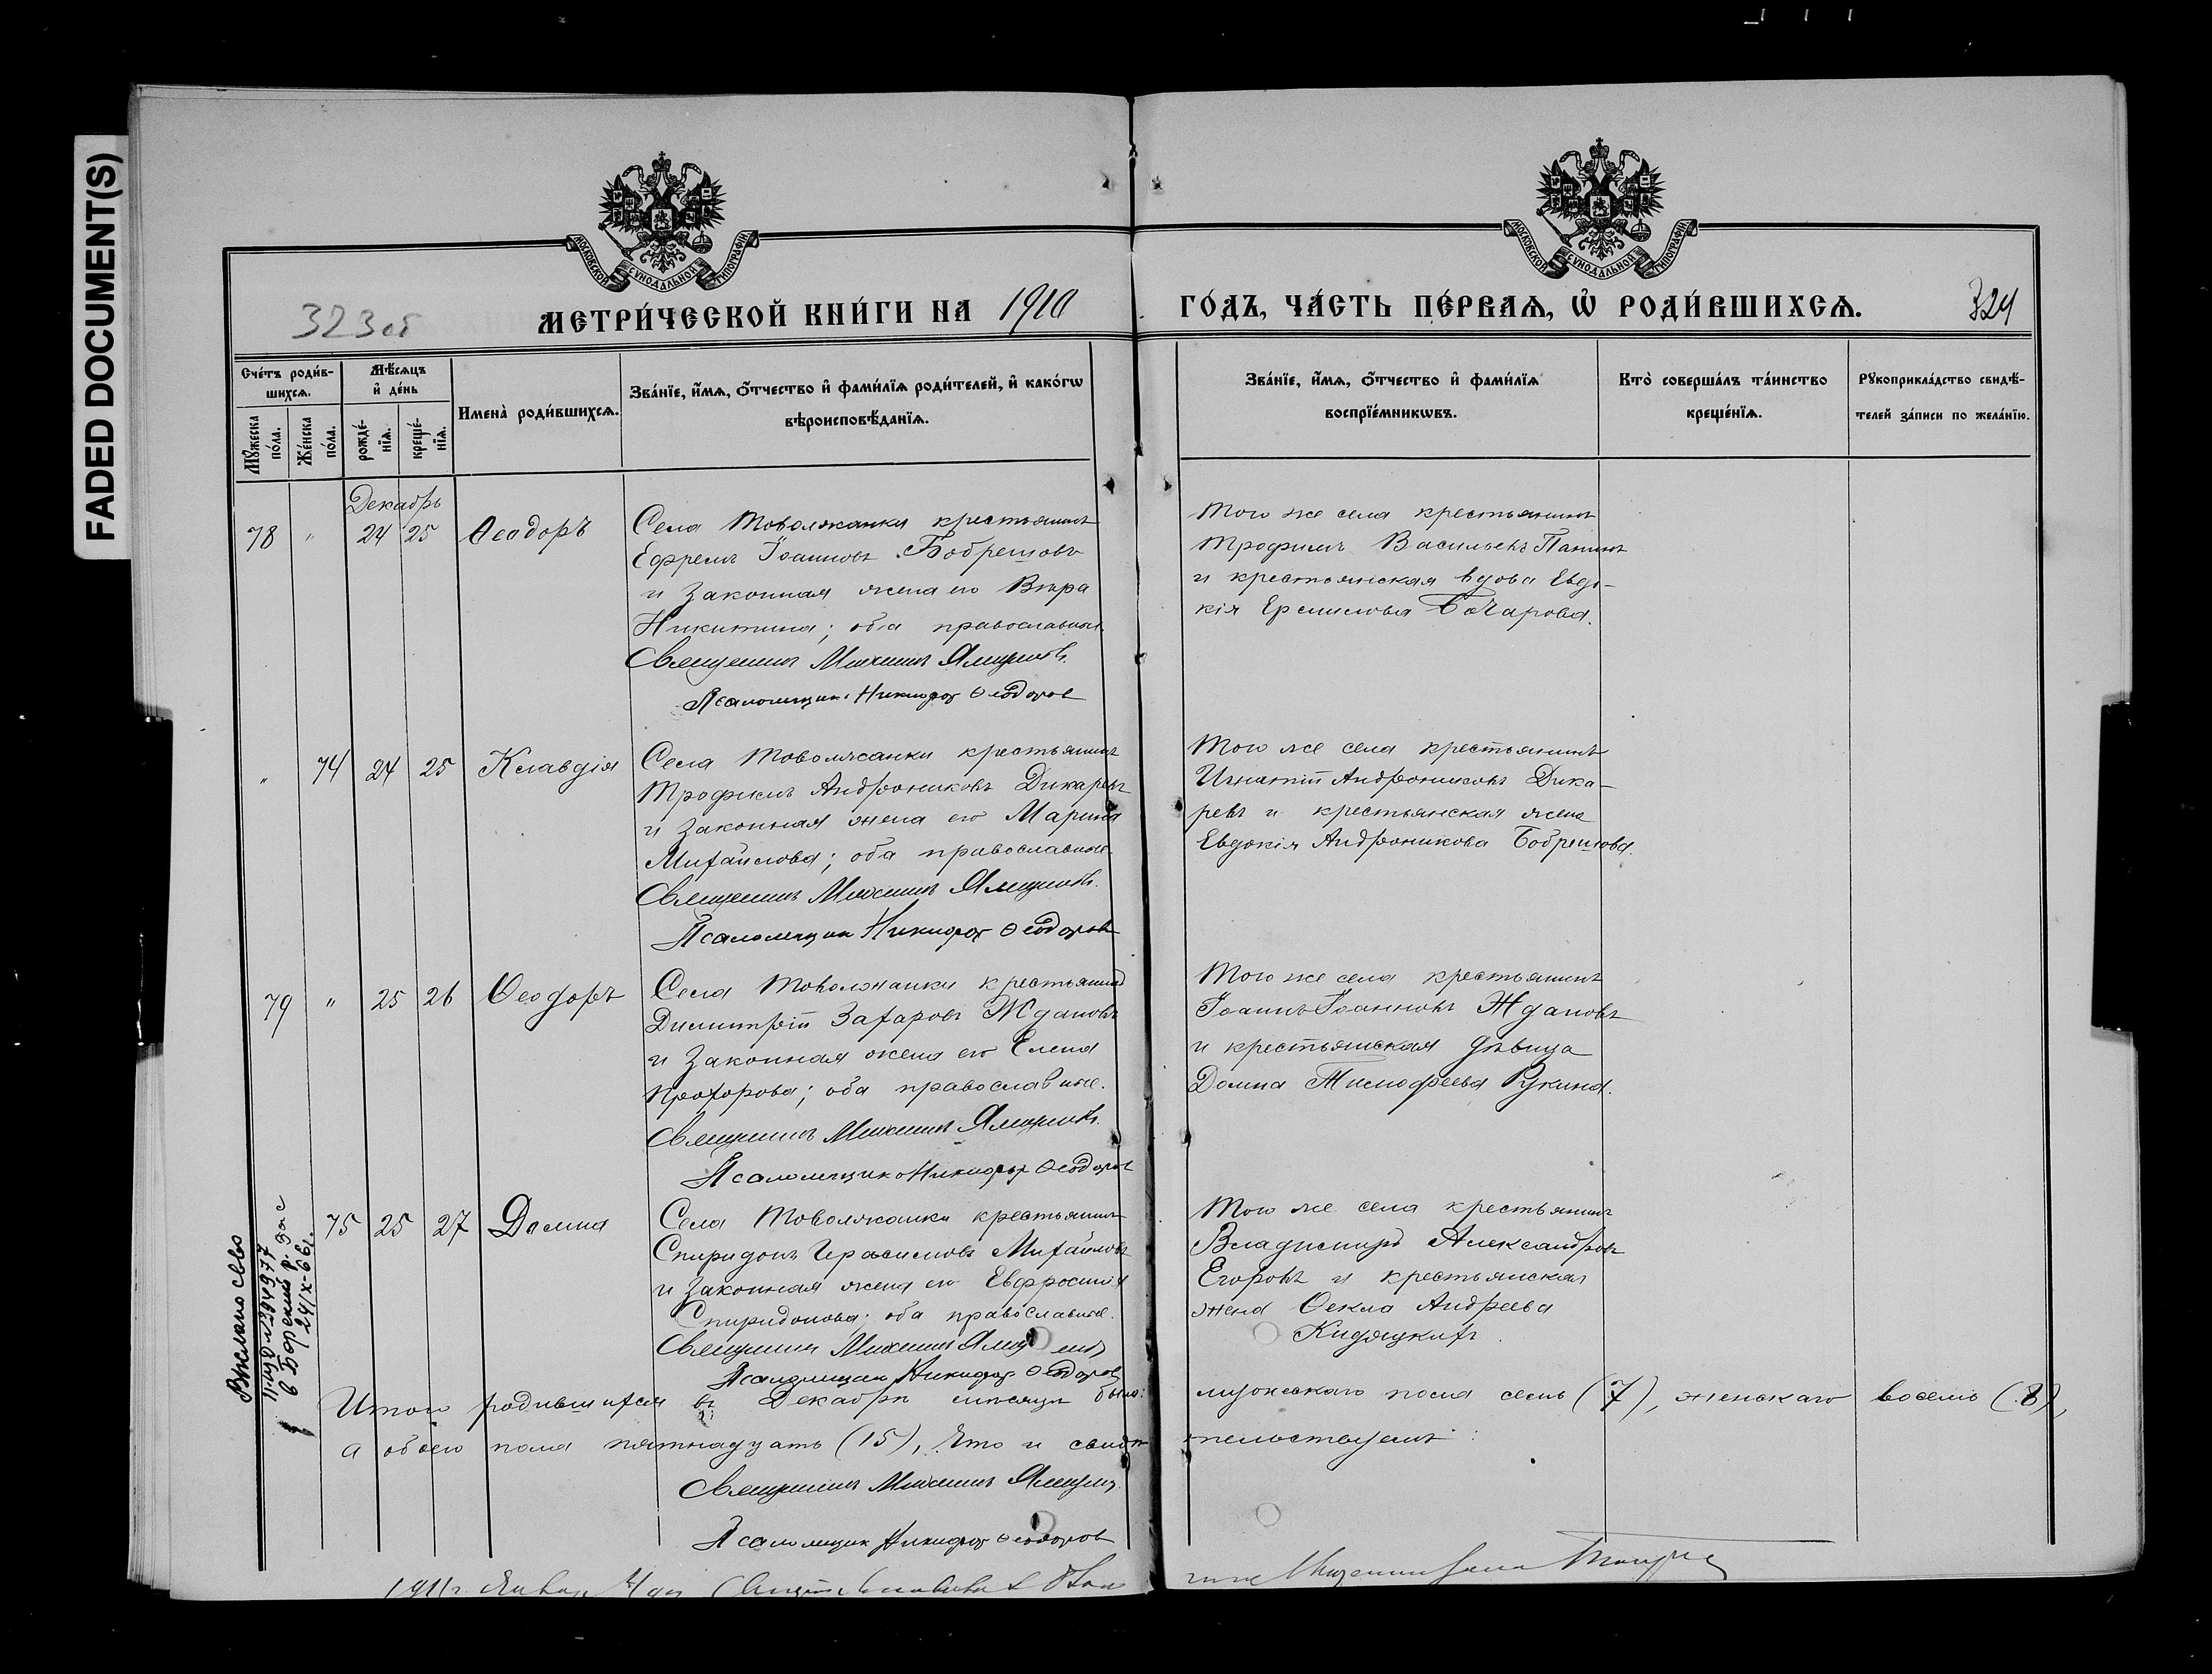 FADED DOCUMENT(S)
МОСКОВСКОЙ СѴНОДАЛЬНОЙ ТИПОГРАФІИ
МОСКОВСКОЙ СѴНОДАЛЬНОЙ ТИПОГРАФІИ
323об
МЕТРИ́ЧЕСКОЙ КНИ́ГИ НА 1910 ГО́ДЪ, ЧА́СТЬ ПЕ́РВАѦ, Ѡ҆ РОДИ́ВШИХСѦ.
324
Сче́тъ роди́в-
шихсѧ.
Мꙋ́жеска
по́ла.
Же́нска
по́ла.
Мѣ́сѧцъ
и҆ де́нь
рожде́-
нїѧ.
креще́-
нїѧ.
Имена̀ роди́вшихсѧ.
Зва́нїе, и҆́мѧ, ѻ҆́тчество и҆ фами́лїѧ роди́телей, и҆ како́гѡ
вѣроисповѣ́данїѧ.
Зва́нїе, и҆́мѧ, ѻ҆́тчество и҆ фами́лїѧ
воспрїе́мникѡвъ.
Кто̀ соверша́лъ та́инство
креще́нїѧ.
Рꙋкоприкла́дство свидѣ́-
телей за́писи по жела́нїю.
Декабрь
78 " 24 25 Ѳеодоръ
Села Товолжанки крестьянинъ
Ефремъ Іоанновъ Бобрешовъ
и законная жена его Вѣра
Никитина; оба православные.
Священникъ Михаилъ
Псаломщикъ Никифоръ Ѳеодоров
Того же села крестьянинъ
Трофимъ Васильевъ Панинъ
и крестьянская вдова Евдо-
кія Бочарова.
" 74 24 25 Клавдія
Села Товолжанки крестьянинъ
Трофимъ Андрониковъ Дикаревъ
и законная жена его Марина
Михайлова; оба православные.
Священникъ Михаилъ
Псаломщикъ Никифоръ Ѳеодоров
Того же села крестьянинъ
Игнатій Андрониковъ Дика-
ревъ и крестьянская жена
Евдокія Андроникова Бобрешова.
79 " 25 26 Ѳеодоръ
Села Товолжанки крестьянинъ
Димитрій Захаровъ Ждановъ
и законная жена его Елена
Прохорова; оба православные.
Священникъ Михаилъ
Псаломщикъ Никифоръ Ѳеодоров
Того же села крестьянинъ
Іоаннъ Іоанновъ Ждановъ
и крестьянская дѣвица
Домна Тимофеева Рукина.
75 25 27 Домна
Села Товолжанки крестьянинъ
Спиридонъ Герасимовъ Михайловъ
и законная жена его Евфросинія
Спиридонова; оба православные.
Священникъ Михаилъ
Псаломщикъ Никифоръ Ѳеодоров
Того же села крестьянинъ
Владиміръ Александровъ
Егоровъ и крестьянская
жена Ѳекла Андреева
Выслано св-во
в Борский р. загс
24/X-66г.
Итого родившихся въ Декабрѣ мѣсяцѣ было: мужескаго пола семь (7), женскаго восемь (8),
а обоего пола пятнадцать (15), что и свидѣтельствуемъ:
Священникъ Михаилъ
Псаломщикъ Никифоръ Ѳеодоров
1911 г. Января